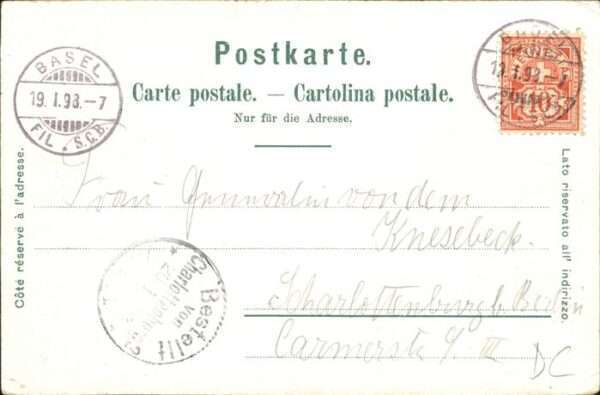 Postkarte.
Carte postale. — Cartolina postale.
Nur für die Adresse.
BASEL
19. I. 98. – 7
FIL. S.C.B.
Côté réservé à l'adresse.
Lato riservato all' indirizzo.
Frau Generalin von dem
Knesebeck.
Charlottenburg b. Berlin
Carmerstr. 9. III
DC
Bestellt
von
Charlottenburg 2